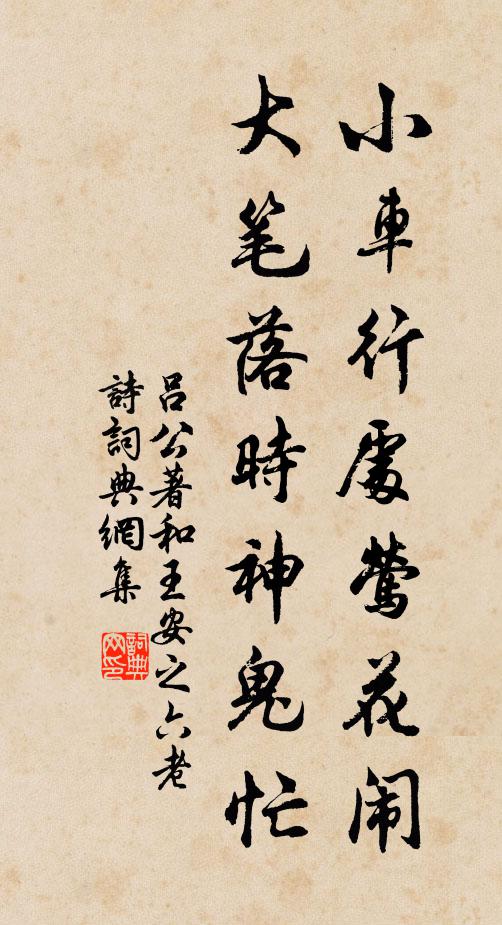 小車行處鶯花闹
大笔落時神鬼忙
吕公著和王安之六老
詩詞典網集
詞典网印